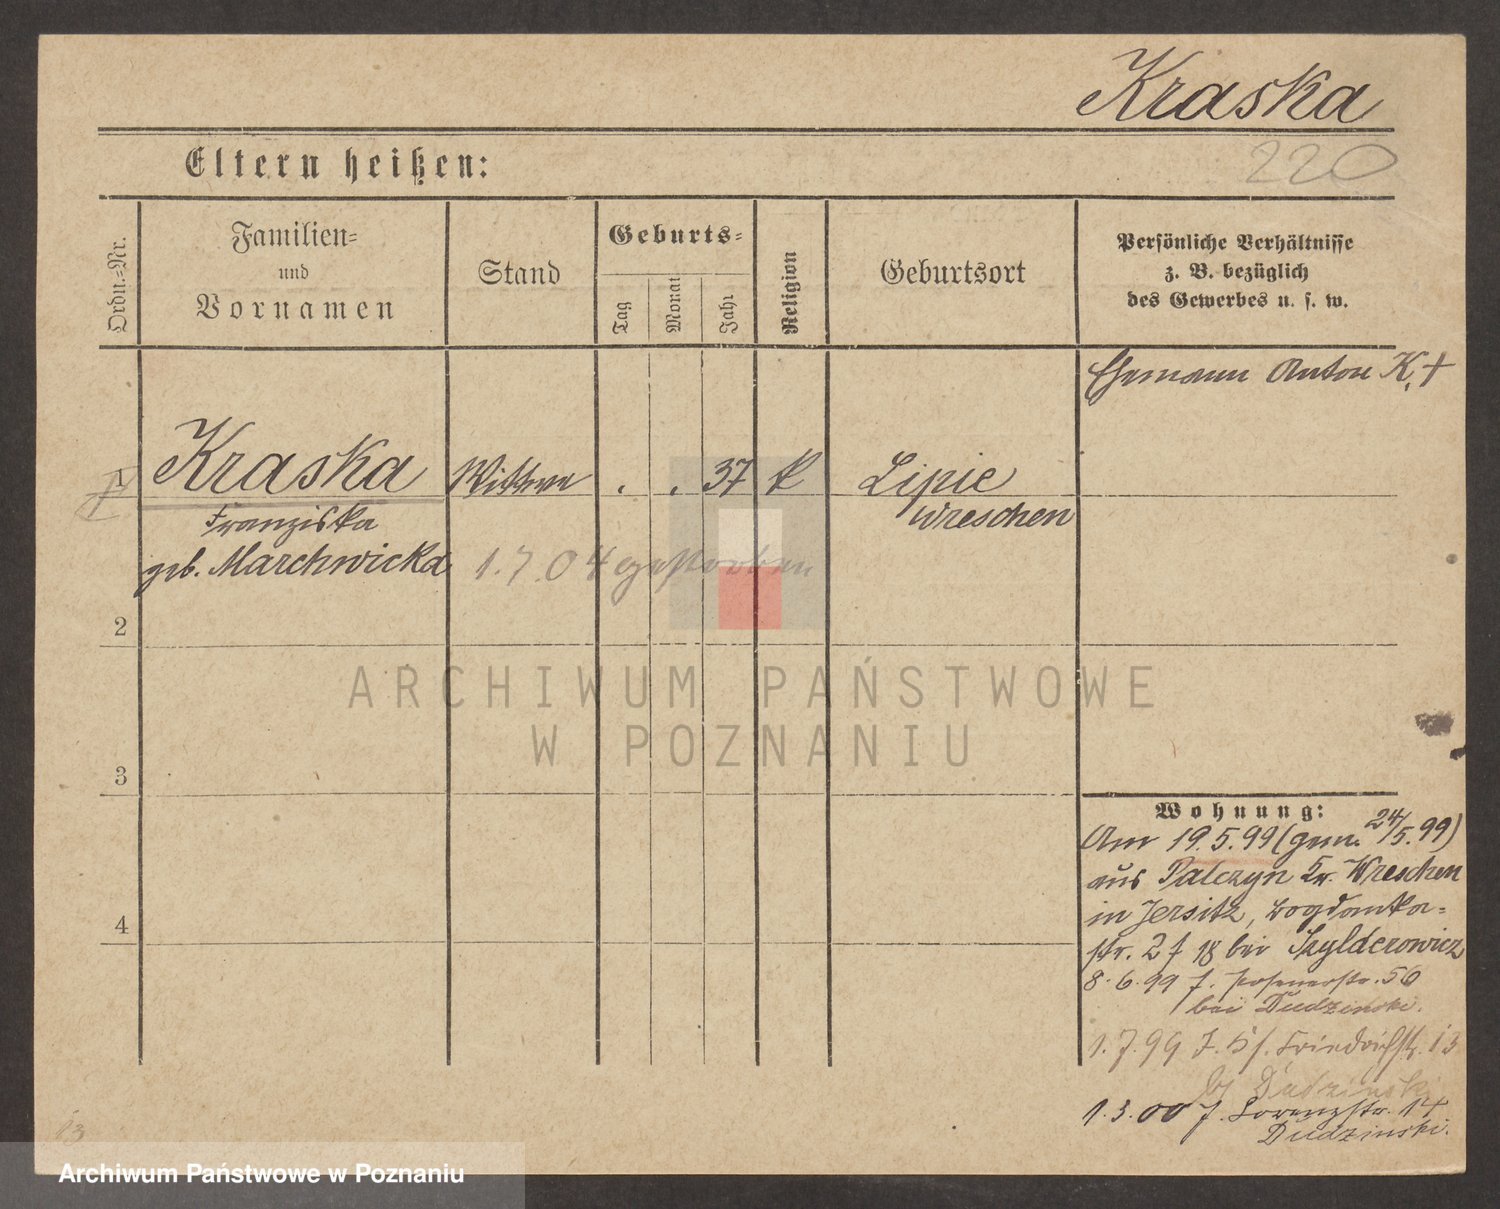 Kraska
220
Eltern heißen:
Ordn.=Nr.
Familien=
und
Vornamen
Stand
Geburts=
Tag
Monat
Jahr
Religion
Geburtsort
Persönliche Verhältnisse
z. B. bezüglich
des Gewerbes u. s. w.
Ehemann Anton K. †
1
Kraska
Wittwe
. . 37
K
Lipie
Wreschen
Franziska
geb. Marchwicka
1.7.04 gestorben
2
3
4
ARCHIWUM PAŃSTWOWE
W POZNANIU
Wohnung:
Am 19.5.99 (gem. 24/5.99)
aus Palczyn Kr. Wreschen
in Jersitz, Bogdanka=
str. 2 f 18 bei Szylderowicz
8.6.99 J. Posenerstr. 56
bei Dudzinski.
1.7.99 J. Friedrichstr. 13
bei Dudzinski
1.3.00 J. Lorenzstr. 14
Dudzinski.
Archiwum Państwowe w Poznaniu